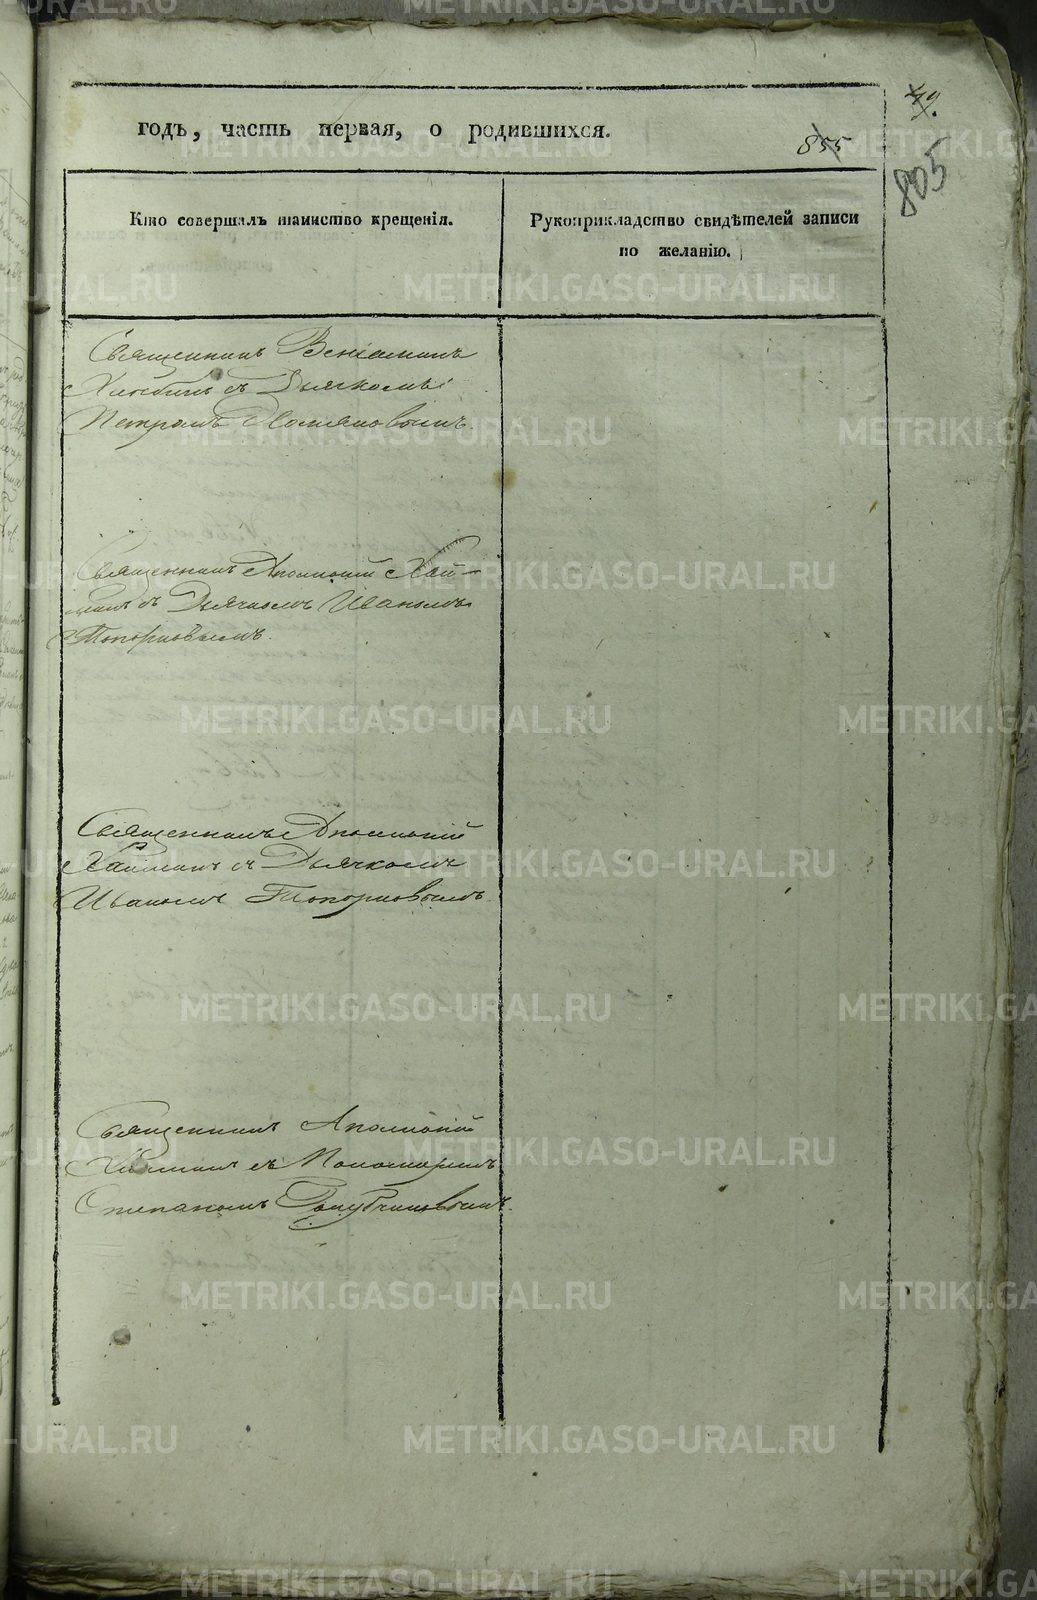 годъ, часть первая, о родившихся.
855
49.
805
Кто совершалъ таинство крещенія.
Рукоприкладство свидѣтелей записи
по желанію.
Священникъ Веніаминъ
съ Дьячкомъ
Петромъ
Священникъ Аполлоній
съ Дьячкомъ Иваномъ
Топорковымъ.
Священникъ Аполлоній
съ Дьячкомъ
Иваномъ Топорковымъ
Священникъ Аполлоній
съ Пономаремъ
Степаномъ
METRIKI.GASO-URAL.RU